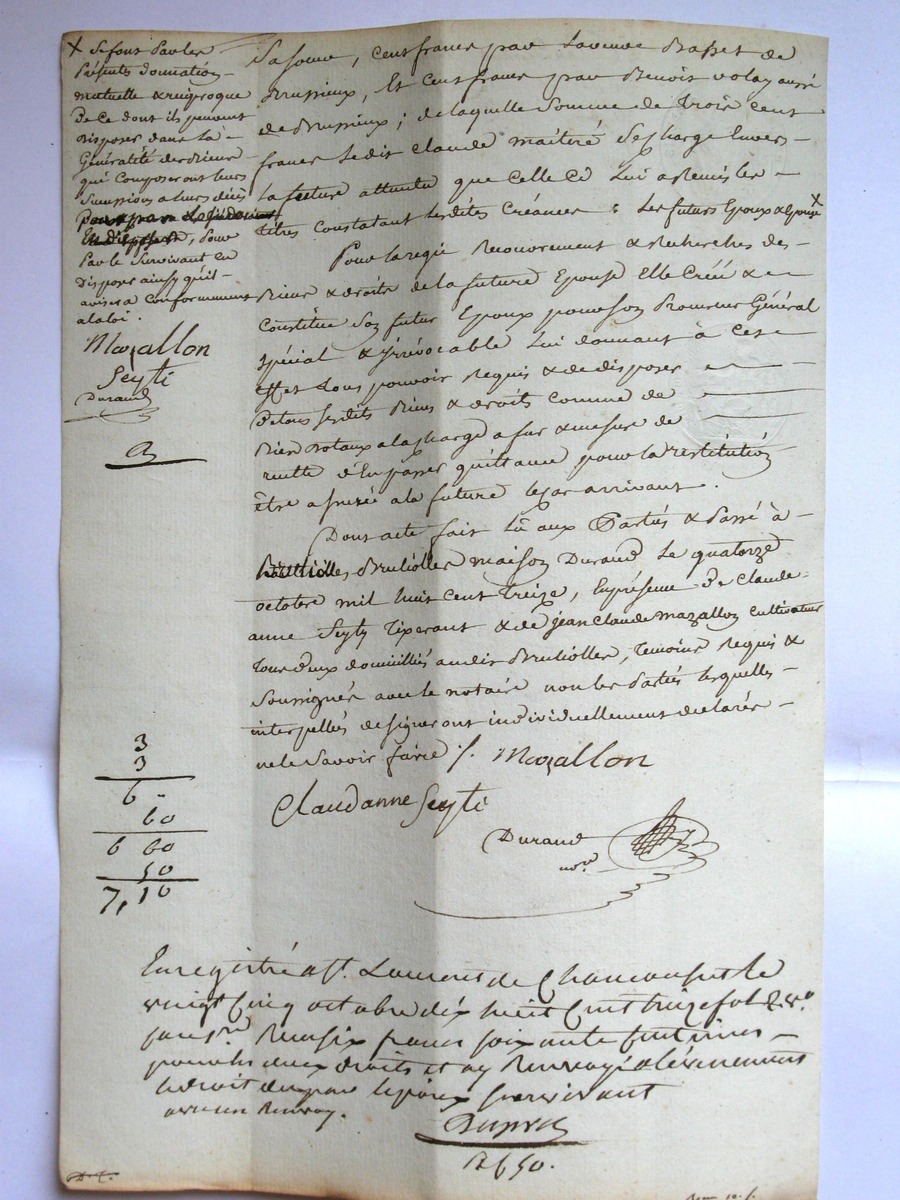 X Se font Par les
Présentes donnation
mutuelle & reciproque
De ce dont ils peuvent
disposer dans la
Généralité des Biens
qui Composeront leurs
Successions a leurs décès
pour
Par le Survivant en
Disposer ainsy qu'il
avisera Conformement
a la loi.
Mazallon
Seyti
Durand
Sa soeur, Cent francs par La veuve Basset de
Brussieux, Et Cent francs par Benoit volay aussi
de Brussieux; de laquelle Somme de trois cent
francs Ledit Claude Se charge Envers
La future attendu que Celle Ci Lui a Remis les
titres Constatant Lesdites Créances: Les futurs Epoux & Epouse X
Pour la regie Recouvrement & Recherches des
Biens & droits de la future Epouse Elle Créé &
Constitue Son futur Epoux pour son Procureur Général
Spécial & irrévocable Lui donnant à Cet
Effet tous pouvoir Requis & de disposer
de tous Sesdits Biens & droits Comme de
Biens Dotaux a la charge a fur & mesure de
recette d'En passer quittance pour la restitution
être assurée a la future le cas arrivant.
Dont acte fait Lû aux Parties & Passé à
Brullioles maison Durand Le quatorze
octobre mil huit Cent treize, En présence de Claude
anne Seyty Tixerant & de jean Claude Mazallon Cultivateur
tous deux domiciliés audit Brullioles, temoins Requis &
Soussignés avec le notaire non les Parties lesquelles
interpellés de signer ont individuellement declarés
ne le Savoir faire /. Mazallon
Claudanne Seyti
Durand
nore
3
3
6 -
60
6 60
50
7,10
Enregistré a St. Laurent de Chamousset le
vingt Cinq octobre dix huit Cent treize fol
Reçu six francs soixante Centimes
pour les deux droits et ay Renvoyé a l'évenement
le droit du par l'époux survivant
aucun Renvoy.
R 6 50.